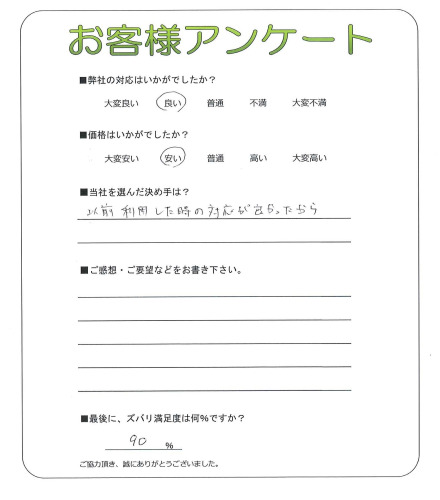 お客様アンケート
■弊社の対応はいかがでしたか?
大変良い 良い 普通 不満 大変不満
■価格はいかがでしたか?
大変安い 安い 普通 高い 大変高い
■当社を選んだ決め手は?
以前利用した時の対応が良かったから
■ご感想・ご要望などをお書き下さい。
■最後に、ズバリ満足度は何%ですか?
90 %
ご協力頂き、誠にありがとうございました。